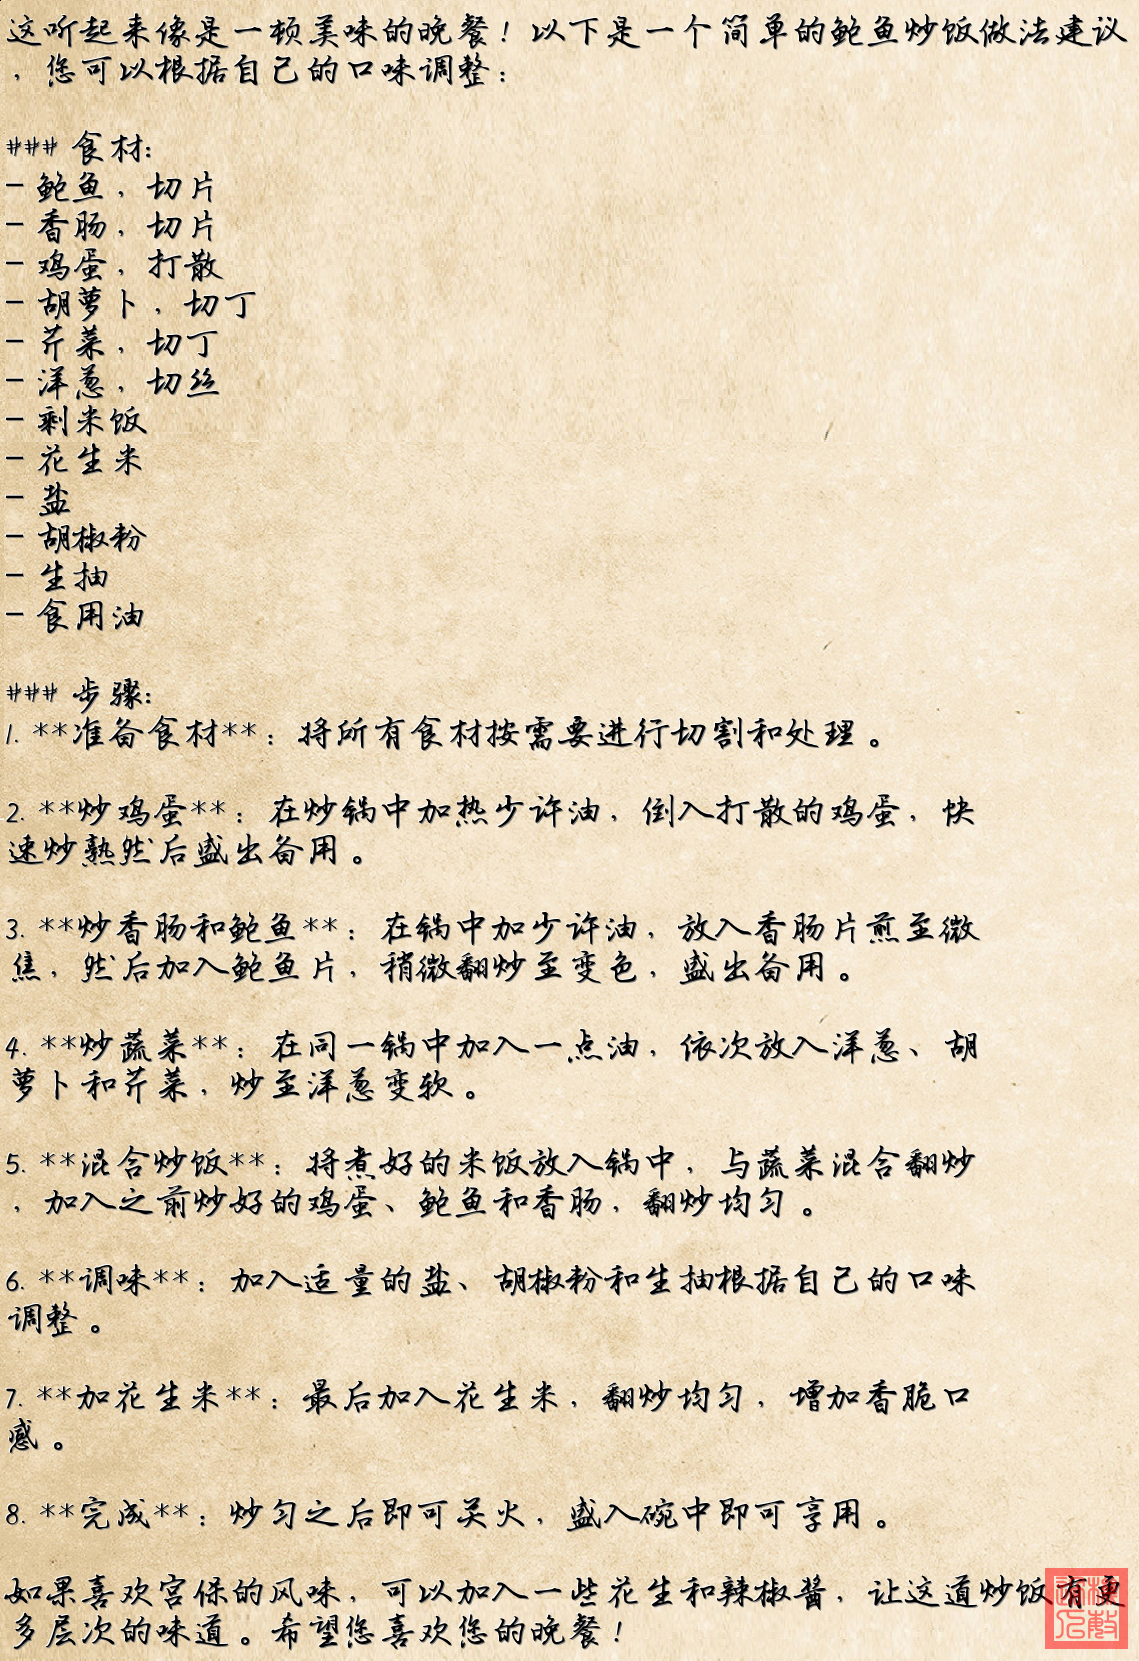 这听起来像是一顿美味的晚餐！以下是一个简单的鲍鱼炒饭做法建议
，您可以根据自己的口味调整：
### 食材：
- 鲍鱼，切片
- 香肠，切片
- 鸡蛋，打散
- 胡萝卜，切丁
- 芹菜，切丁
- 洋葱，切丝
- 剩米饭
- 花生米
- 盐
- 胡椒粉
- 生抽
- 食用油
### 步骤：
1. **准备食材**：将所有食材按需要进行切割和处理。
2. **炒鸡蛋**：在炒锅中加热少许油，倒入打散的鸡蛋，快
速炒熟然后盛出备用。
3. **炒香肠和鲍鱼**：在锅中加少许油，放入香肠片煎至微
焦，然后加入鲍鱼片，稍微翻炒至变色，盛出备用。
4. **炒蔬菜**：在同一锅中加入一点油，依次放入洋葱、胡
萝卜和芹菜，炒至洋葱变软。
5. **混合炒饭**：将煮好的米饭放入锅中，与蔬菜混合翻炒
，加入之前炒好的鸡蛋、鲍鱼和香肠，翻炒均匀。
6. **调味**：加入适量的盐、胡椒粉和生抽根据自己的口味
调整。
7. **加花生米**：最后加入花生米，翻炒均匀，增加香脆口
感。
8. **完成**：炒匀之后即可关火，盛入碗中即可享用。
如果喜欢宫保的风味，可以加入一些花生和辣椒酱，让这道炒饭有更
多层次的味道。希望您喜欢您的晚餐！